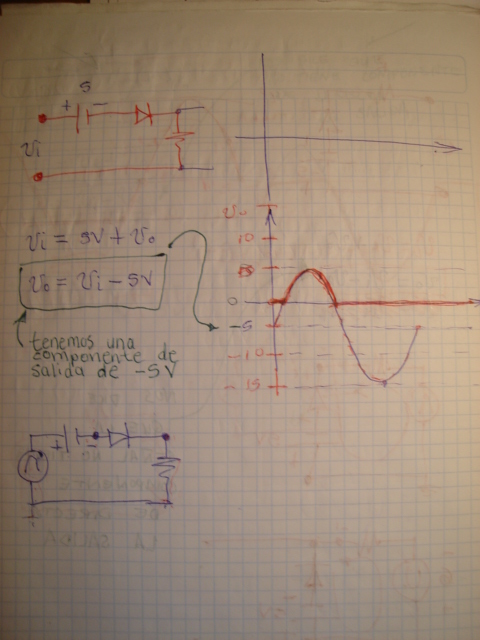 5
+ −
Vi
Vi = 5V + Vo
Vo = Vi − 5V
tenemos una
componente de
salida de −5V
Vo
10
5
0
−5
−10
−15
+ −